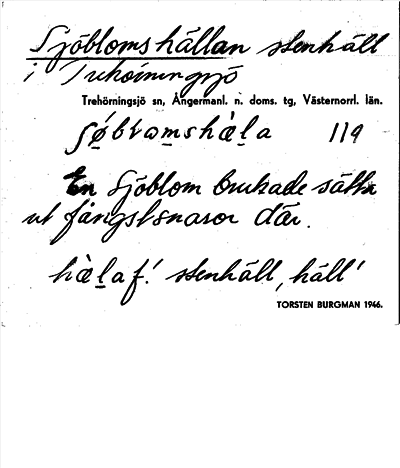 Sjöblomshällan stenhäll
i Trehörningsjö
Trehörningsjö sn, Ångermanl. n. doms. tg, Västernorrl. län.
119
En Sjöblom brukade sätta
ut fångstsnaror där.
stenhäll, häll'
TORSTEN BURGMAN 1946.